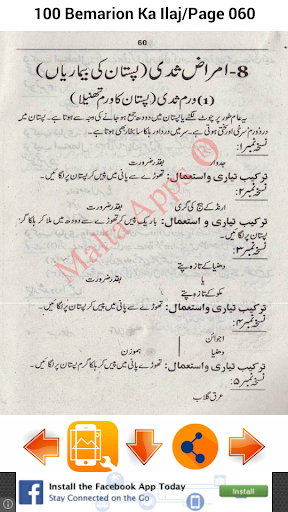 100 Bemarion Ka Ilaj/Page 060
60
8- امراض ثدی (پستان کی بیماریاں)
(۱) ورم ثدی (پستان کا ورم تھنیلا)
یہ عام طور پر چوٹ لگنے یا پستان میں دودھ جمع ہو جانے کی وجہ سے ہوتا ہے۔ پستان میں
درد ورم سرخی اور تپتی ہوتی ہے۔ سر میں درد اور ہلکا سا بخار بھی ہوتا ہے۔
نسخہ نمبر۱:
جدوار بقدر ضرورت
ترکیب تیاری واستعمال: تھوڑے سے پانی میں پیس کر پستان پر لگائیں۔
نسخہ نمبر۲:
ارنڈ کے بیج کی گری بقدر ضرورت
ترکیب تیاری و استعمال: باریک پیس کر تھوڑے سے دودھ میں ملا کر ہلکا گرم
پستان پر لگائیں۔
نسخہ نمبر۳:
دھنیا کے تازہ پتے
یا بقدر ضرورت
مکو کے تازہ پتے
ترکیب تیاری واستعمال: تھوڑے سے پانی میں پیس کر پستان پر لگائیں۔
نسخہ نمبر۴:
اجوائن
دھنیا ہموزن
ترکیب تیاری واستعمال: تھوڑے سے پانی میں پیس کر ہلکا گرم پستان پر لگائیں۔
نسخہ نمبر۵:
عرق گلاب
Malta Apps ®
Install the Facebook App Today
Stay Connected on the Go
Install